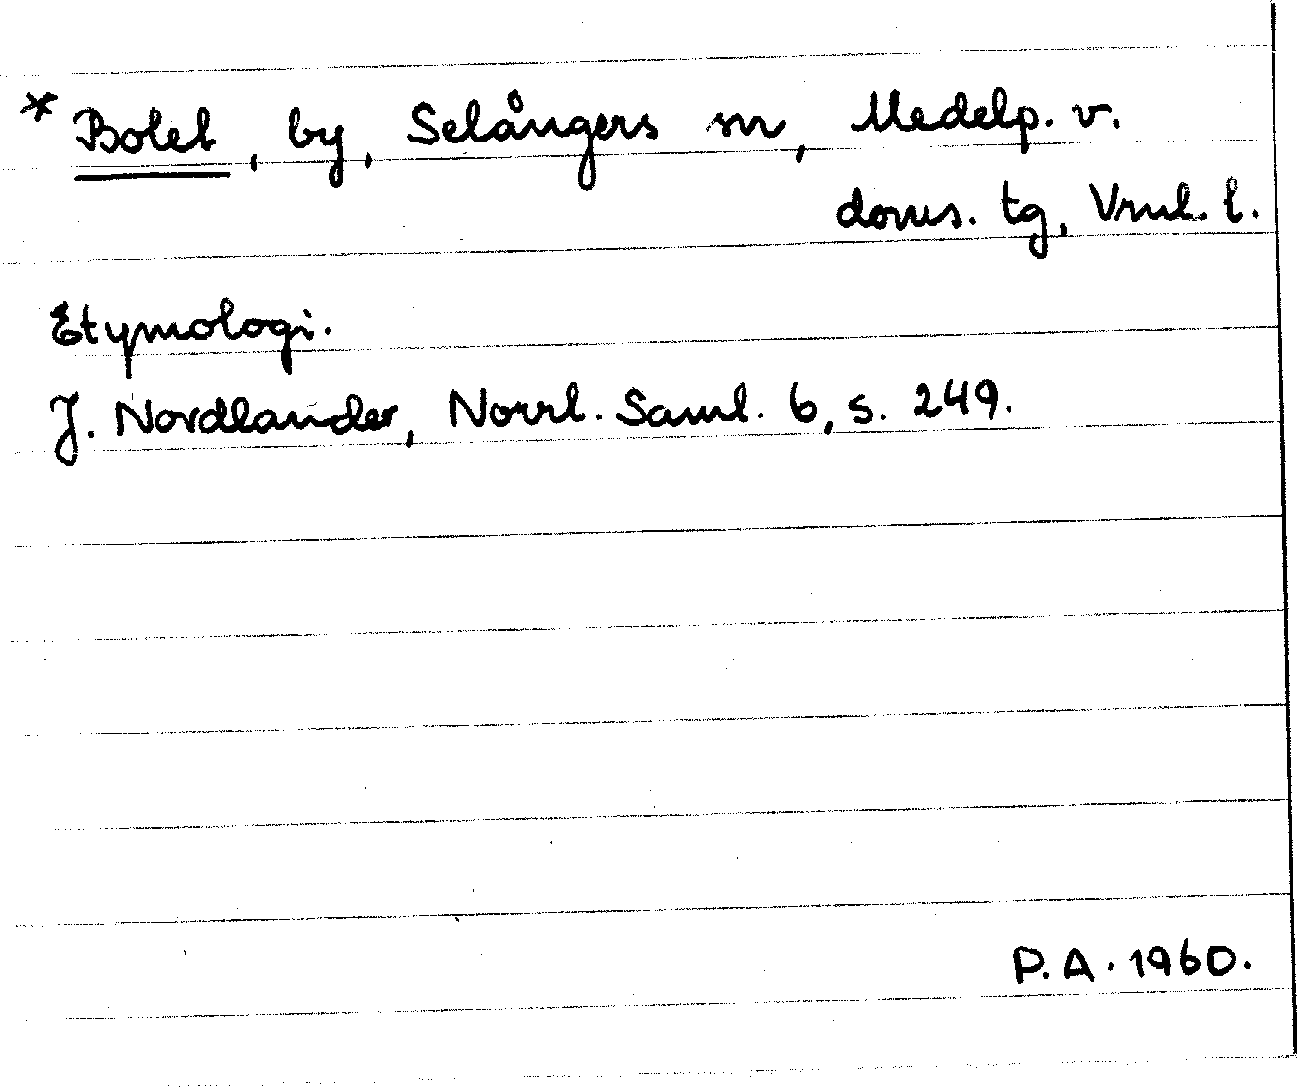 * Bolet, by, Selångers sn, Medelp. v.
doms. tg, Vnl. l.
Etymologi.
J. Nordlander, Norrl. Saml. 6, s. 249.
P.A. 1960.